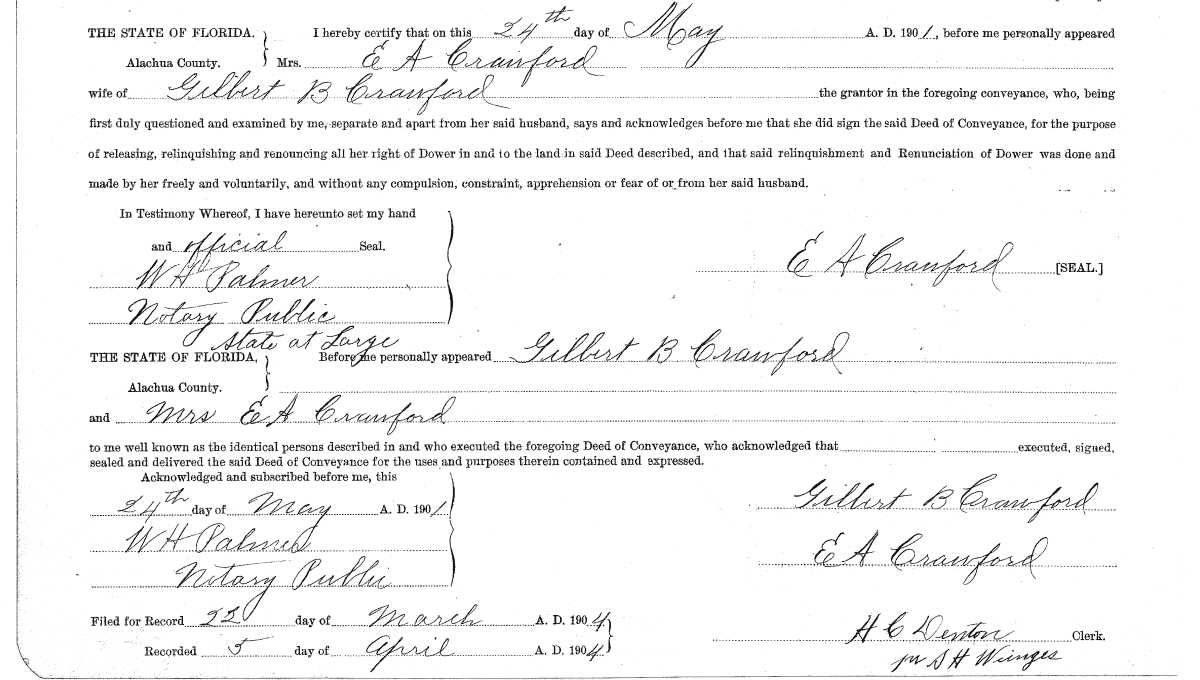 THE STATE OF FLORIDA, } I hereby certify that on this 24th day of May A. D. 1901, before me personally appeared
Alachua County. } Mrs. E A Crawford
wife of Gilbert B Crawford the grantor in the foregoing conveyance, who, being
first duly questioned and examined by me, separate and apart from her said husband, says and acknowledges before me that she did sign the said Deed of Conveyance, for the purpose
of releasing, relinquishing and renouncing all her right of Dower in and to the land in said Deed described, and that said relinquishment and Renunciation of Dower was done and
made by her freely and voluntarily, and without any compulsion, constraint, apprehension or fear of or from her said husband.
In Testimony Whereof, I have hereunto set my hand
and official Seal.
E A Crawford [SEAL.]
W H Palmer
Notary Public
State at Large
THE STATE OF FLORIDA, } Before me personally appeared Gilbert B Crawford
Alachua County. }
and Mrs E A Crawford
to me well known as the identical persons described in and who executed the foregoing Deed of Conveyance, who acknowledged that executed, signed,
sealed and delivered the said Deed of Conveyance for the uses and purposes therein contained and expressed.
Acknowledged and subscribed before me, this
24th day of May A. D. 1901
Gilbert B Crawford
W H Palmer
E A Crawford
Notary Public
Filed for Record 22 day of March A. D. 1904
H C Denton Clerk.
Recorded 5 day of April A. D. 1904
pr S H Wienges